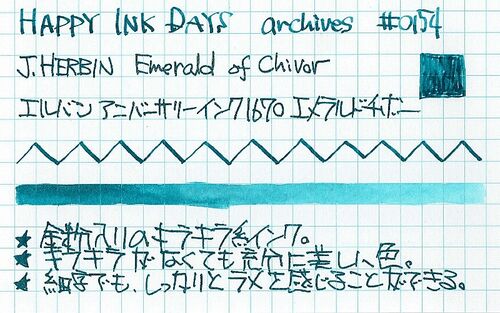 HAPPY INK DAYS archives #0154
J.HERBIN Emerald of Chivor
エルバン アニバーサリーインク1670 エメラルドチボー
★ 金粉入りのキラキラ系インク。
★ キラキラがなくても充分に美しい色。
★ 細字でも、しっかりとラメを感じることができる。